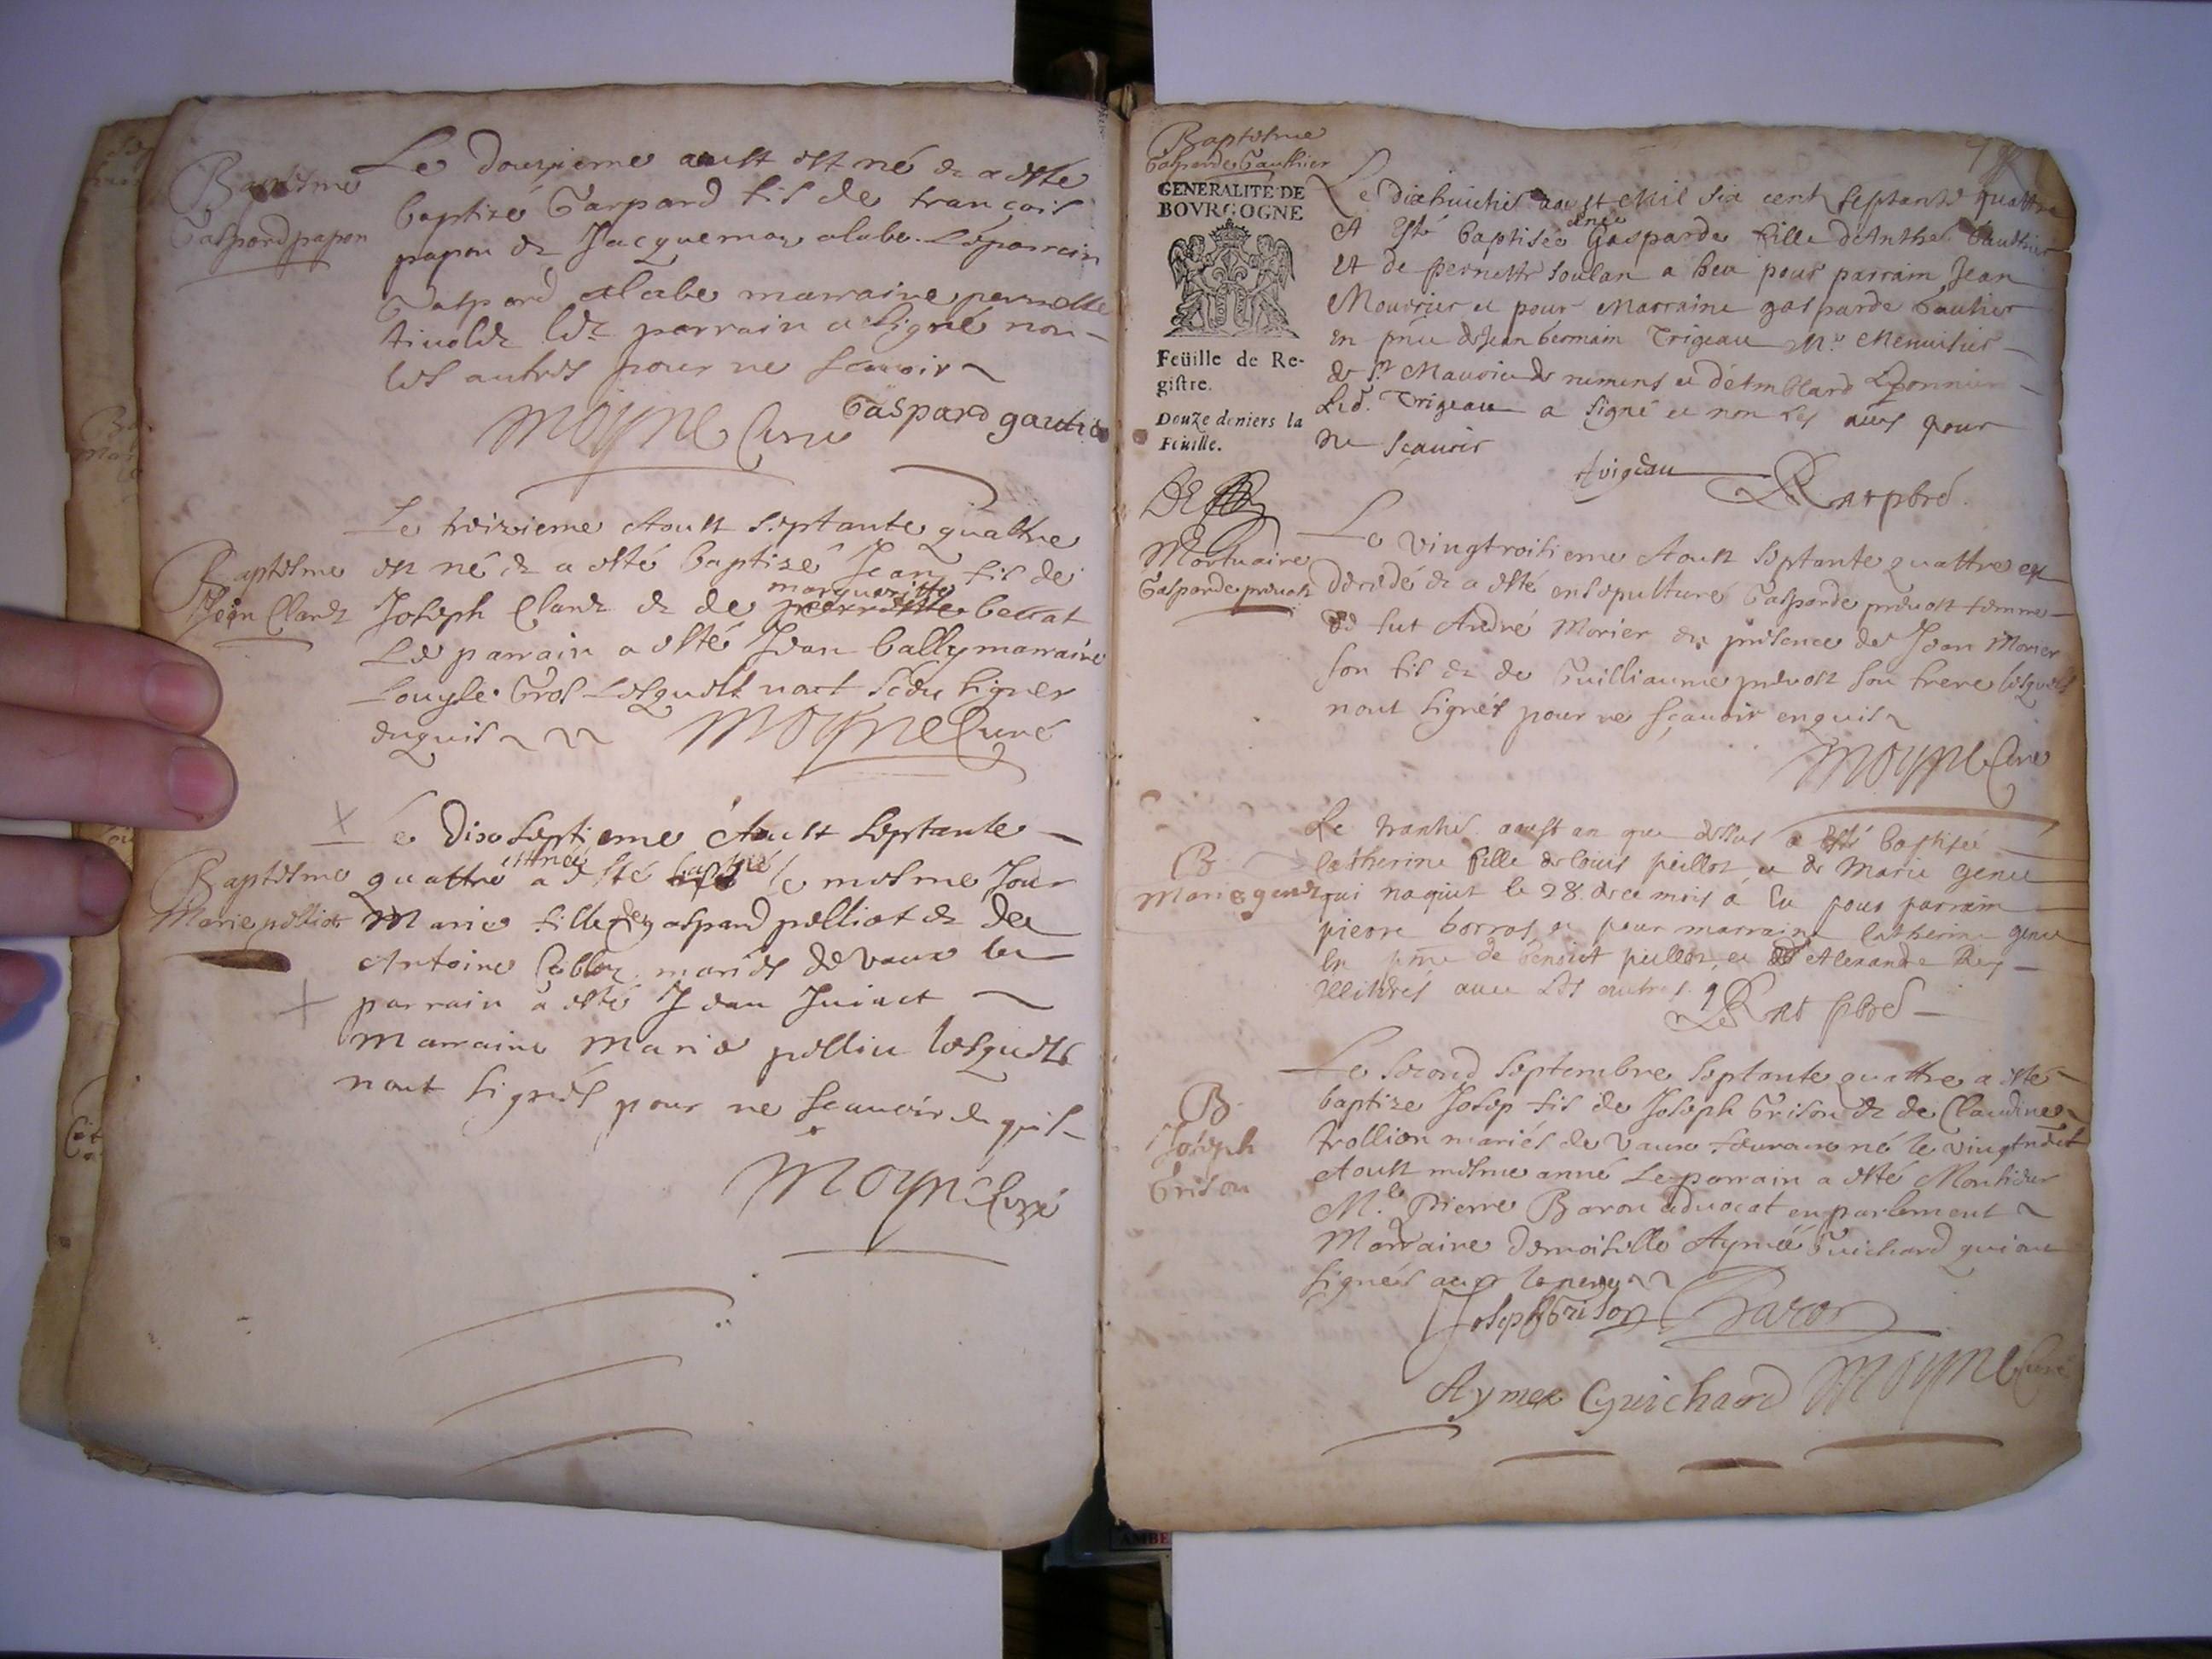 Baptesme
Gaspard papon
Le douzieme aoust est né & a esté
baptizé Gaspard fils de françois
papon & Jacquemaz alabe. Le parrain
Gaspard alabe marraine pernette
led. parrain a signé non
les autres pour ne scavoir
Gaspard gautie
Moyne Curé
Le treizieme Aoust septante quattre
Baptesme
Jean Claret
est né & a esté baptizé Jean fils de
margueritte
Joseph Claret & de pernette beccat
Le parrain a esté Jean bally marraine
Louyse Gros Lesquels nont sceu signer
enquis Moyne Curé
Le dixseptieme Aoust septante
Baptesme
Marie pelliot
est née
quattre a esté baptizé le mesme Jour
Marie fille de gaspard pelliot & de
Antoine mariés de vaux le
parrain a esté Jean Juinet
Marraine Marie pelliu lesquels
nont signés pour ne scauoir enquis
Moyne Curé
Baptesme
Gasparde Gauthier
GENERALITE DE
BOVRGOGNE
Feüille de Re-
gistre.
Douze deniers la
Feüille.
Le dixhuictie aoust Mil six cent septante quattre
née
A esté baptisée Gasparde fille dAnthe Gauthier
et de pernette soulan a heu pour parrain Jean
Mourier et pour Marraine gasparde Gautier
en pnce de Jean Germain Trigeau Mre Menuisier
de St Maurice de remens et dEmblard
Led. Trigeau a signé et non les aues pour
ne scauoir
trigeau
pbre.
Mortuaire
Gasparde preuost
Le vingtroisieme Aoust septante quattre est
decedé & a esté ensepulturé Gasparde preuost femme
de fut André Morier en presence de Jean Morier
son fils & de Guilliaume preuost son frere lesquels
nont signés pour ne sçauoir enquis
Moyne Curé
Le trantie aoust an que dessus a esté baptisée
B
Marie genet
Catherine fille de louis peillot et de Marie genet
qui naquit le 28. de ce mois a Eu pour parrain
pierre borros et pour marraine Catherine genet
en pnce de benoist peillot, et de Alexandre Rey
Illitérés auec les autres.
pbre
Le second septembre septante quattre a esté
B
Joseph
Grison
baptize Josep fils de Joseph Grison & de Claudine
trollion mariés de vaux feurano né le vingtneuf
Aoust mesme anné Le parrain a esté Monsieur
Me. Pierre Baron aduocat en parlement
Marraine demoiselle Aymée Guichard qui ont
signés auec le pere
Joseph Grison Baron
Aymee Guichard Moyne Curé